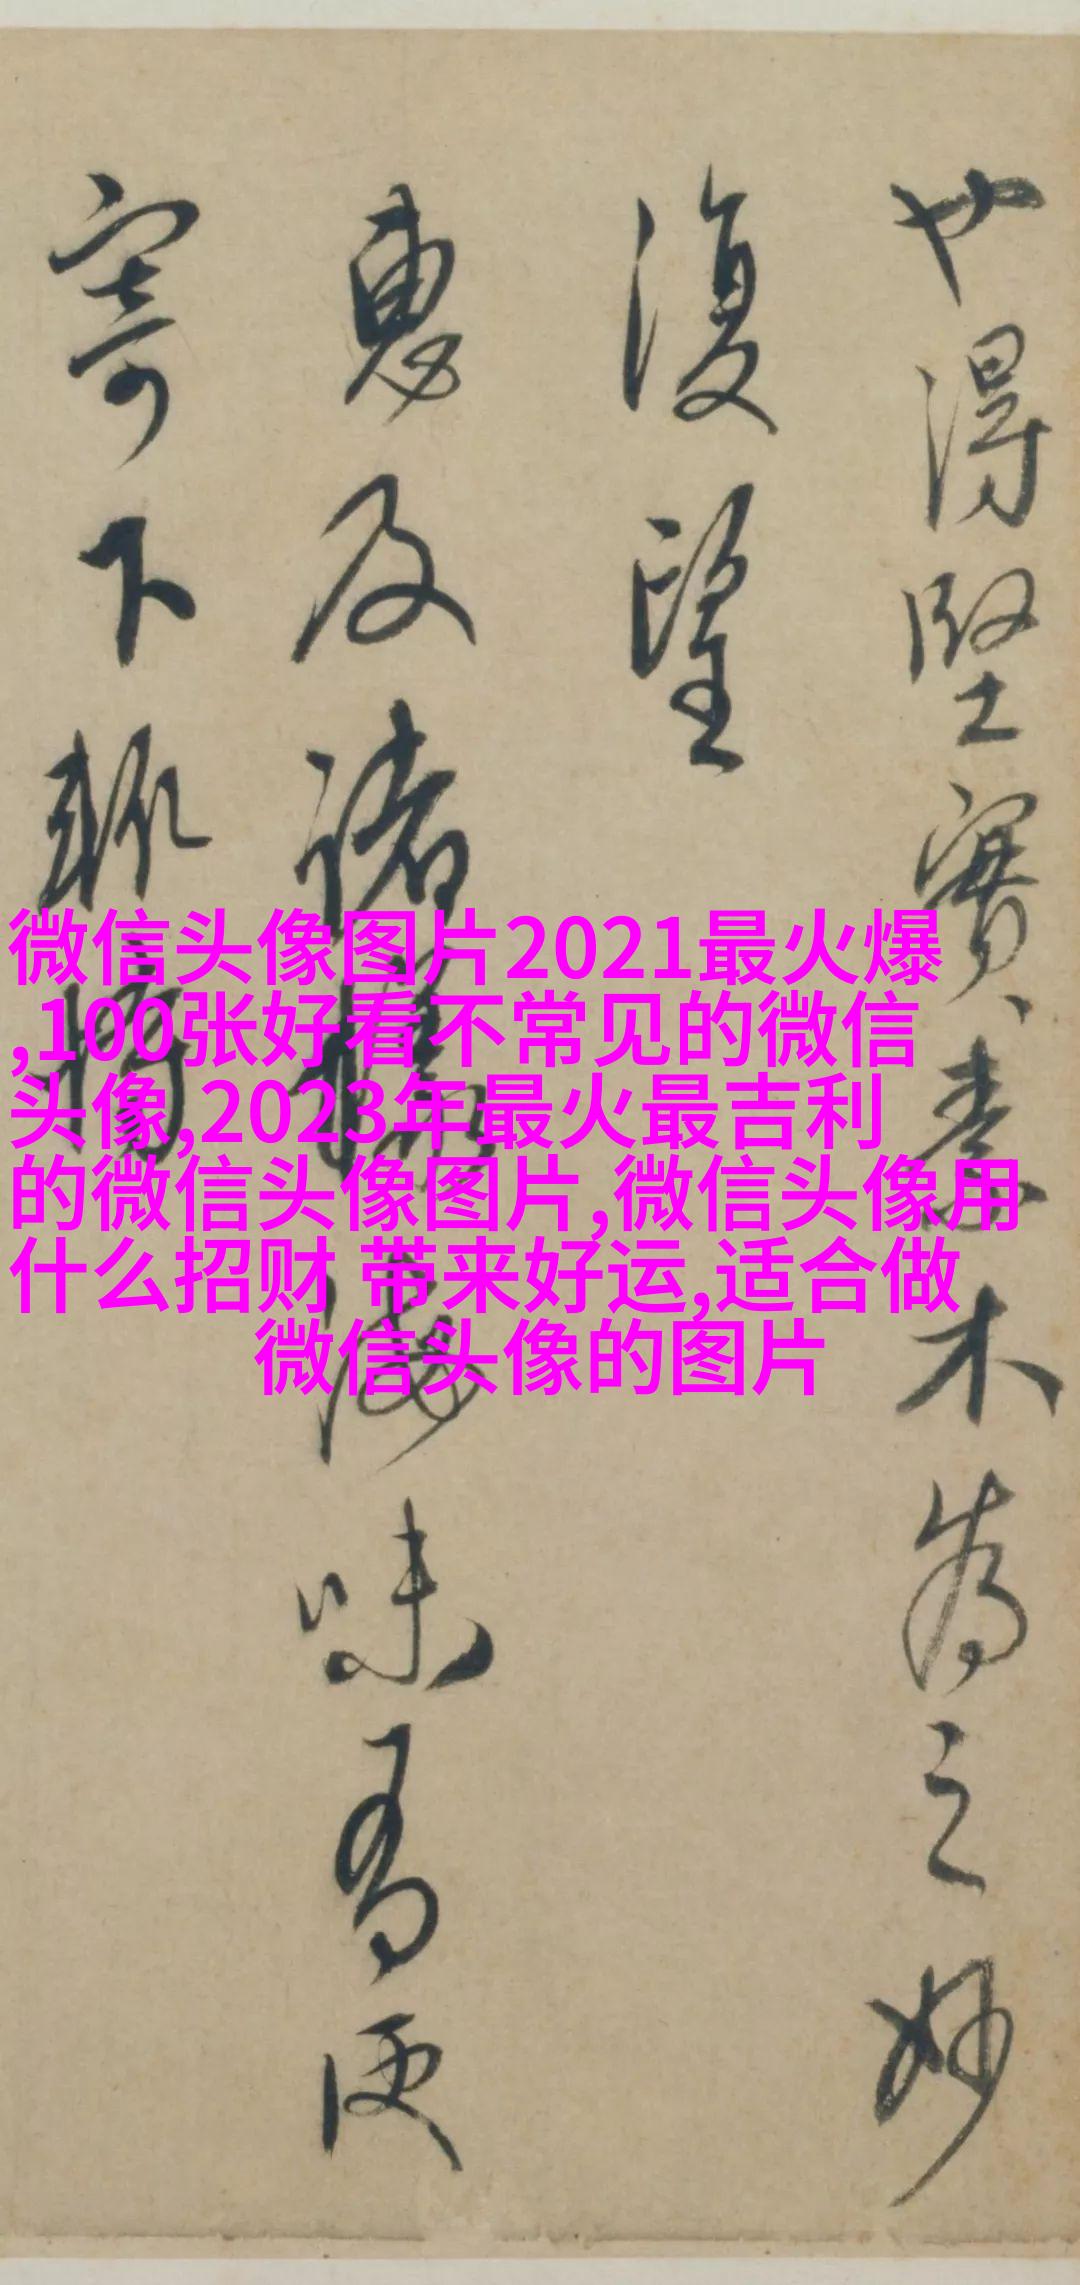 也得堅實素木為之妙
復望
惠及諸
海味有便
寄下
微信头像图片2021最火爆
,100张好看不常见的微信
头像,2023年最火最吉利
的微信头像图片,微信头像用
什么招财 带来好运,适合做
微信头像的图片